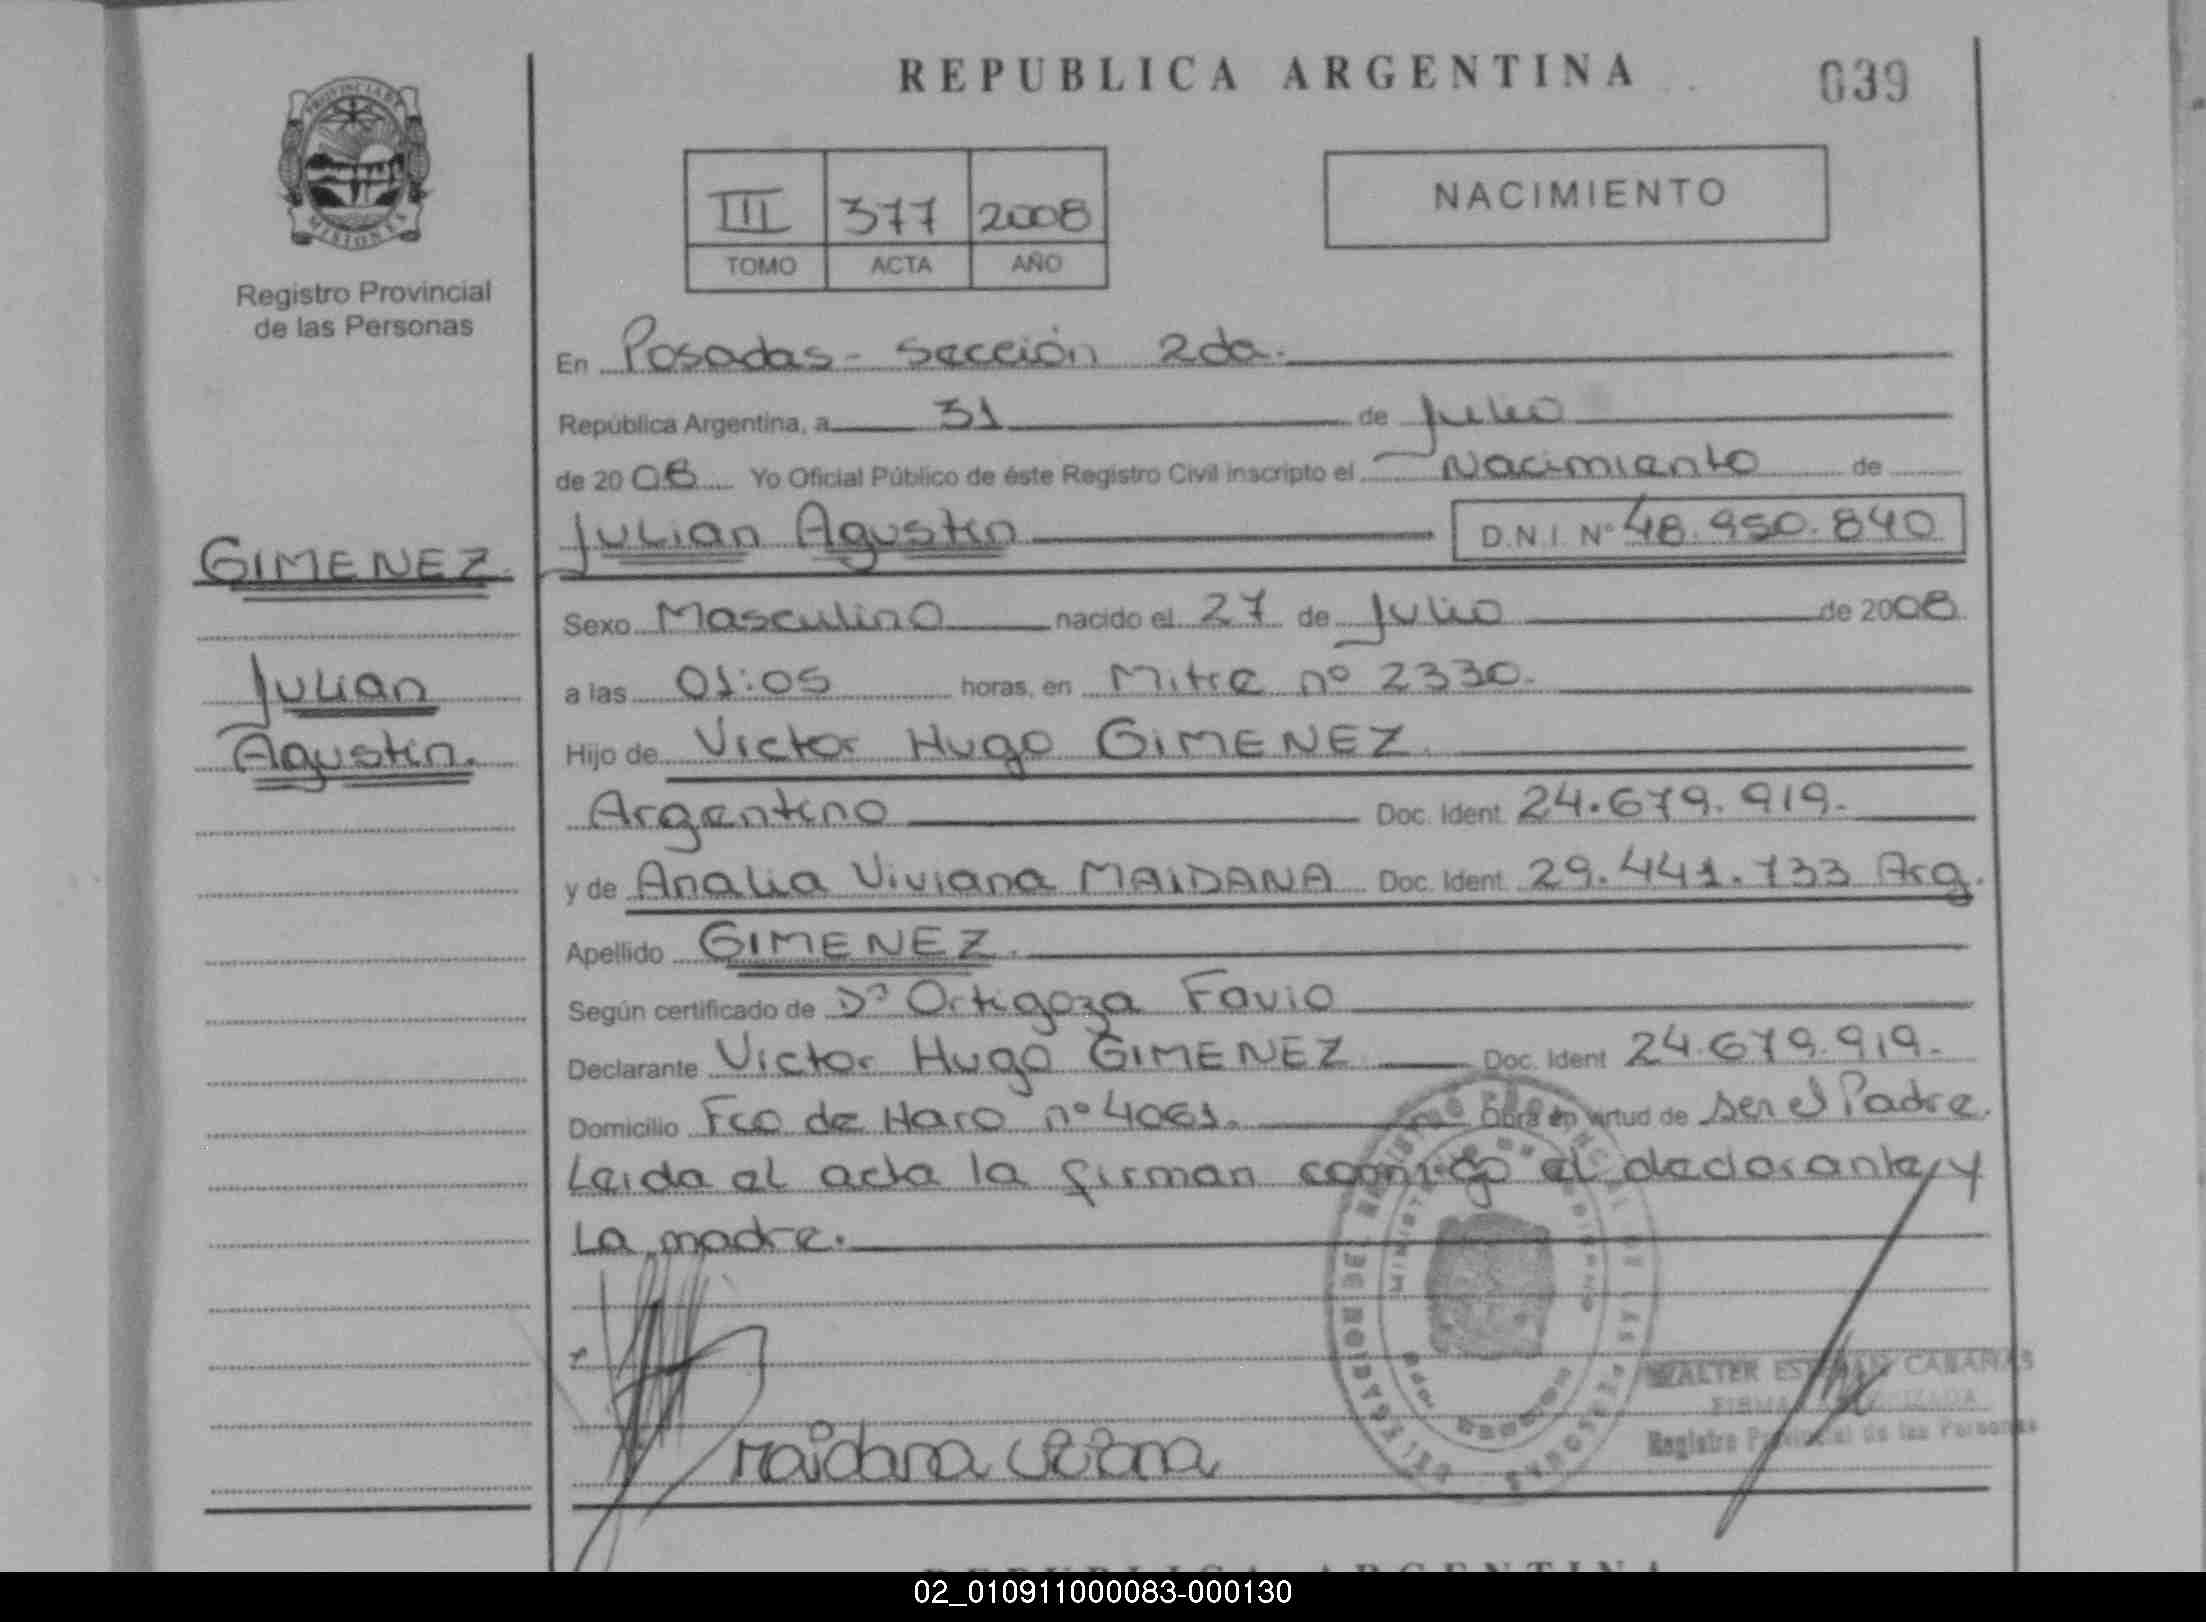 REPUBLICA ARGENTINA
039
PROVINCIA DE
MISIONES
Registro Provincial
de las Personas
III 377 2008
TOMO ACTA AÑO
NACIMIENTO
En Posadas - Sección 2da.
República Argentina, a 31 de Julio
de 2008 Yo Oficial Público de éste Registro Civil inscripto el Nacimiento de
GIMENEZ
Julian
Agustin.
Julian Agustin D.N.I. Nº 48.950.840
Sexo Masculino nacido el 27 de Julio de 2008
a las 01:05 horas, en Mitre nº 2330.
Hijo de Victor Hugo GIMENEZ.
Argentino Doc. Ident 24.679.919.
y de Analia Viviana MAIDANA Doc. Ident 29.441.733 Arg.
Apellido GIMENEZ.
Según certificado de Dr Ortigoza Favio
Declarante Victor Hugo GIMENEZ Doc. Ident 24.679.919.
Domicilio Fco de Haro nº 4061. Obra en virtud de ser el Padre.
Leida el acta la firman conmigo el declarante y
La madre.
Maidana Viviana
WALTER ESTEBAN CABAÑAS
FIRMA AUTORIZADA
Registro Provincial de las Personas
REPUBLICA ARGENTINA
02_010911000083-000130